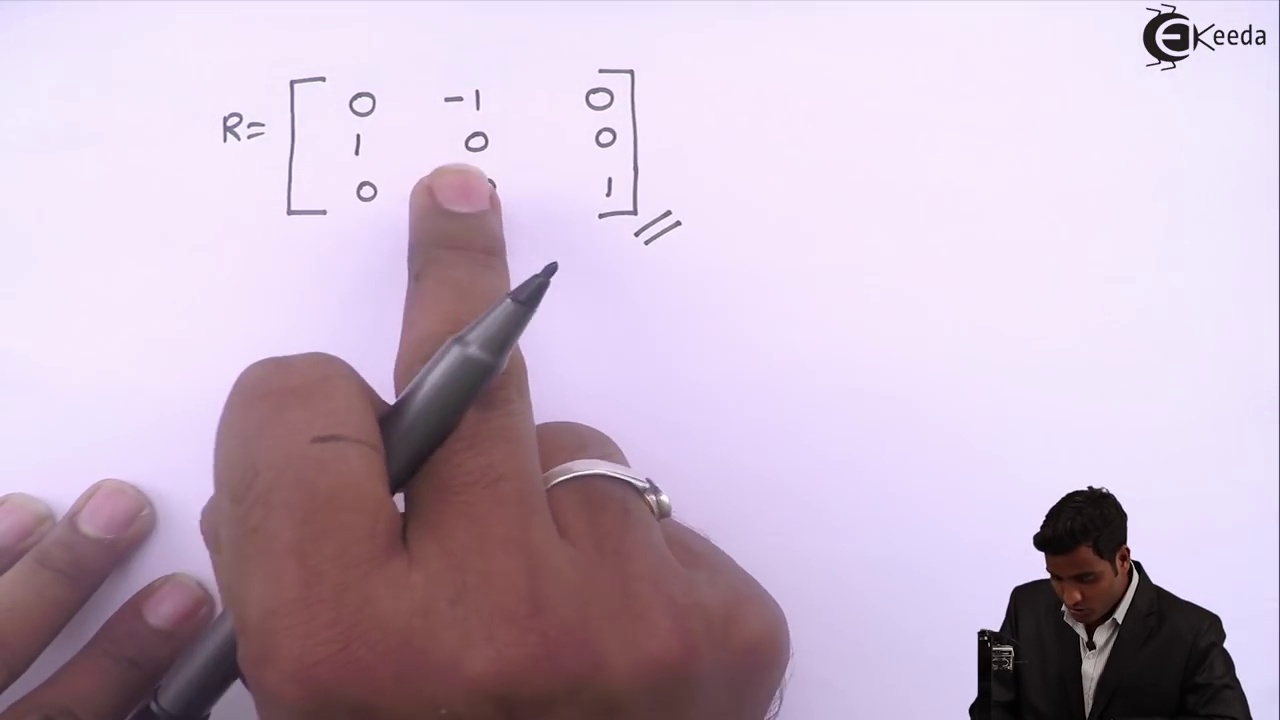 EKeeda
R= [ 0 -1 0
1 0 0
0 1 ]